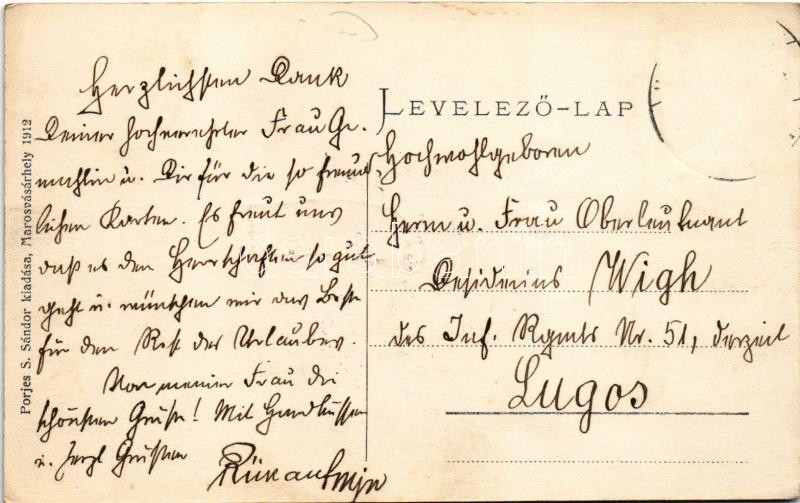 Herzlichsten Dank
Deiner hochverehrten Frau Ge-
mahlin u. Dir für die so freund-
lichen Karten. Es freut uns
daß es den Herrschaften so gut
geht u. wünschen wir das Beste
für den Rest des Urlaubes.
Von meiner Frau die
schönsten Grüße! Mit Handküssen
u. herzl Grüßen
LEVELEZŐ-LAP
Hochwohlgeboren
Herrn u. Frau Oberleutnant
Desiderius Wigh
des Inf. Rgmts Nr. 51, derzeit
Lugos
Porjes S. Sándor kiadása, Marosvásárhely 1912